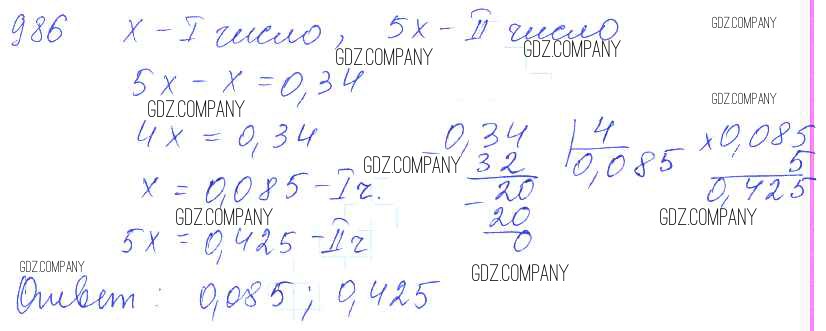 986 x – I число, 5x – II число
GDZ.COMPANY
GDZ.COMPANY GDZ.COMPANY
5x – x = 0,34
GDZ.COMPANY GDZ.COMPANY
4x = 0,34
x = 0,085 – I ч.
GDZ.COMPANY
5x = 0,425 – II ч
– 0,34 | 4
32 0,085
GDZ.COMPANY
– 20
20
0
x 0,085
5
0,425
GDZ.COMPANY
GDZ.COMPANY GDZ.COMPANY
Ответ: 0,085; 0,425